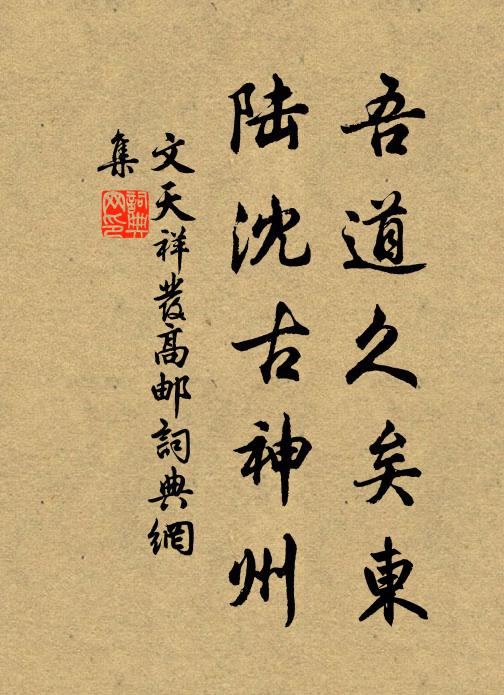 吾道久矣東
陸沈古神州
文天祥發高邮詞典網
集
詞典網印